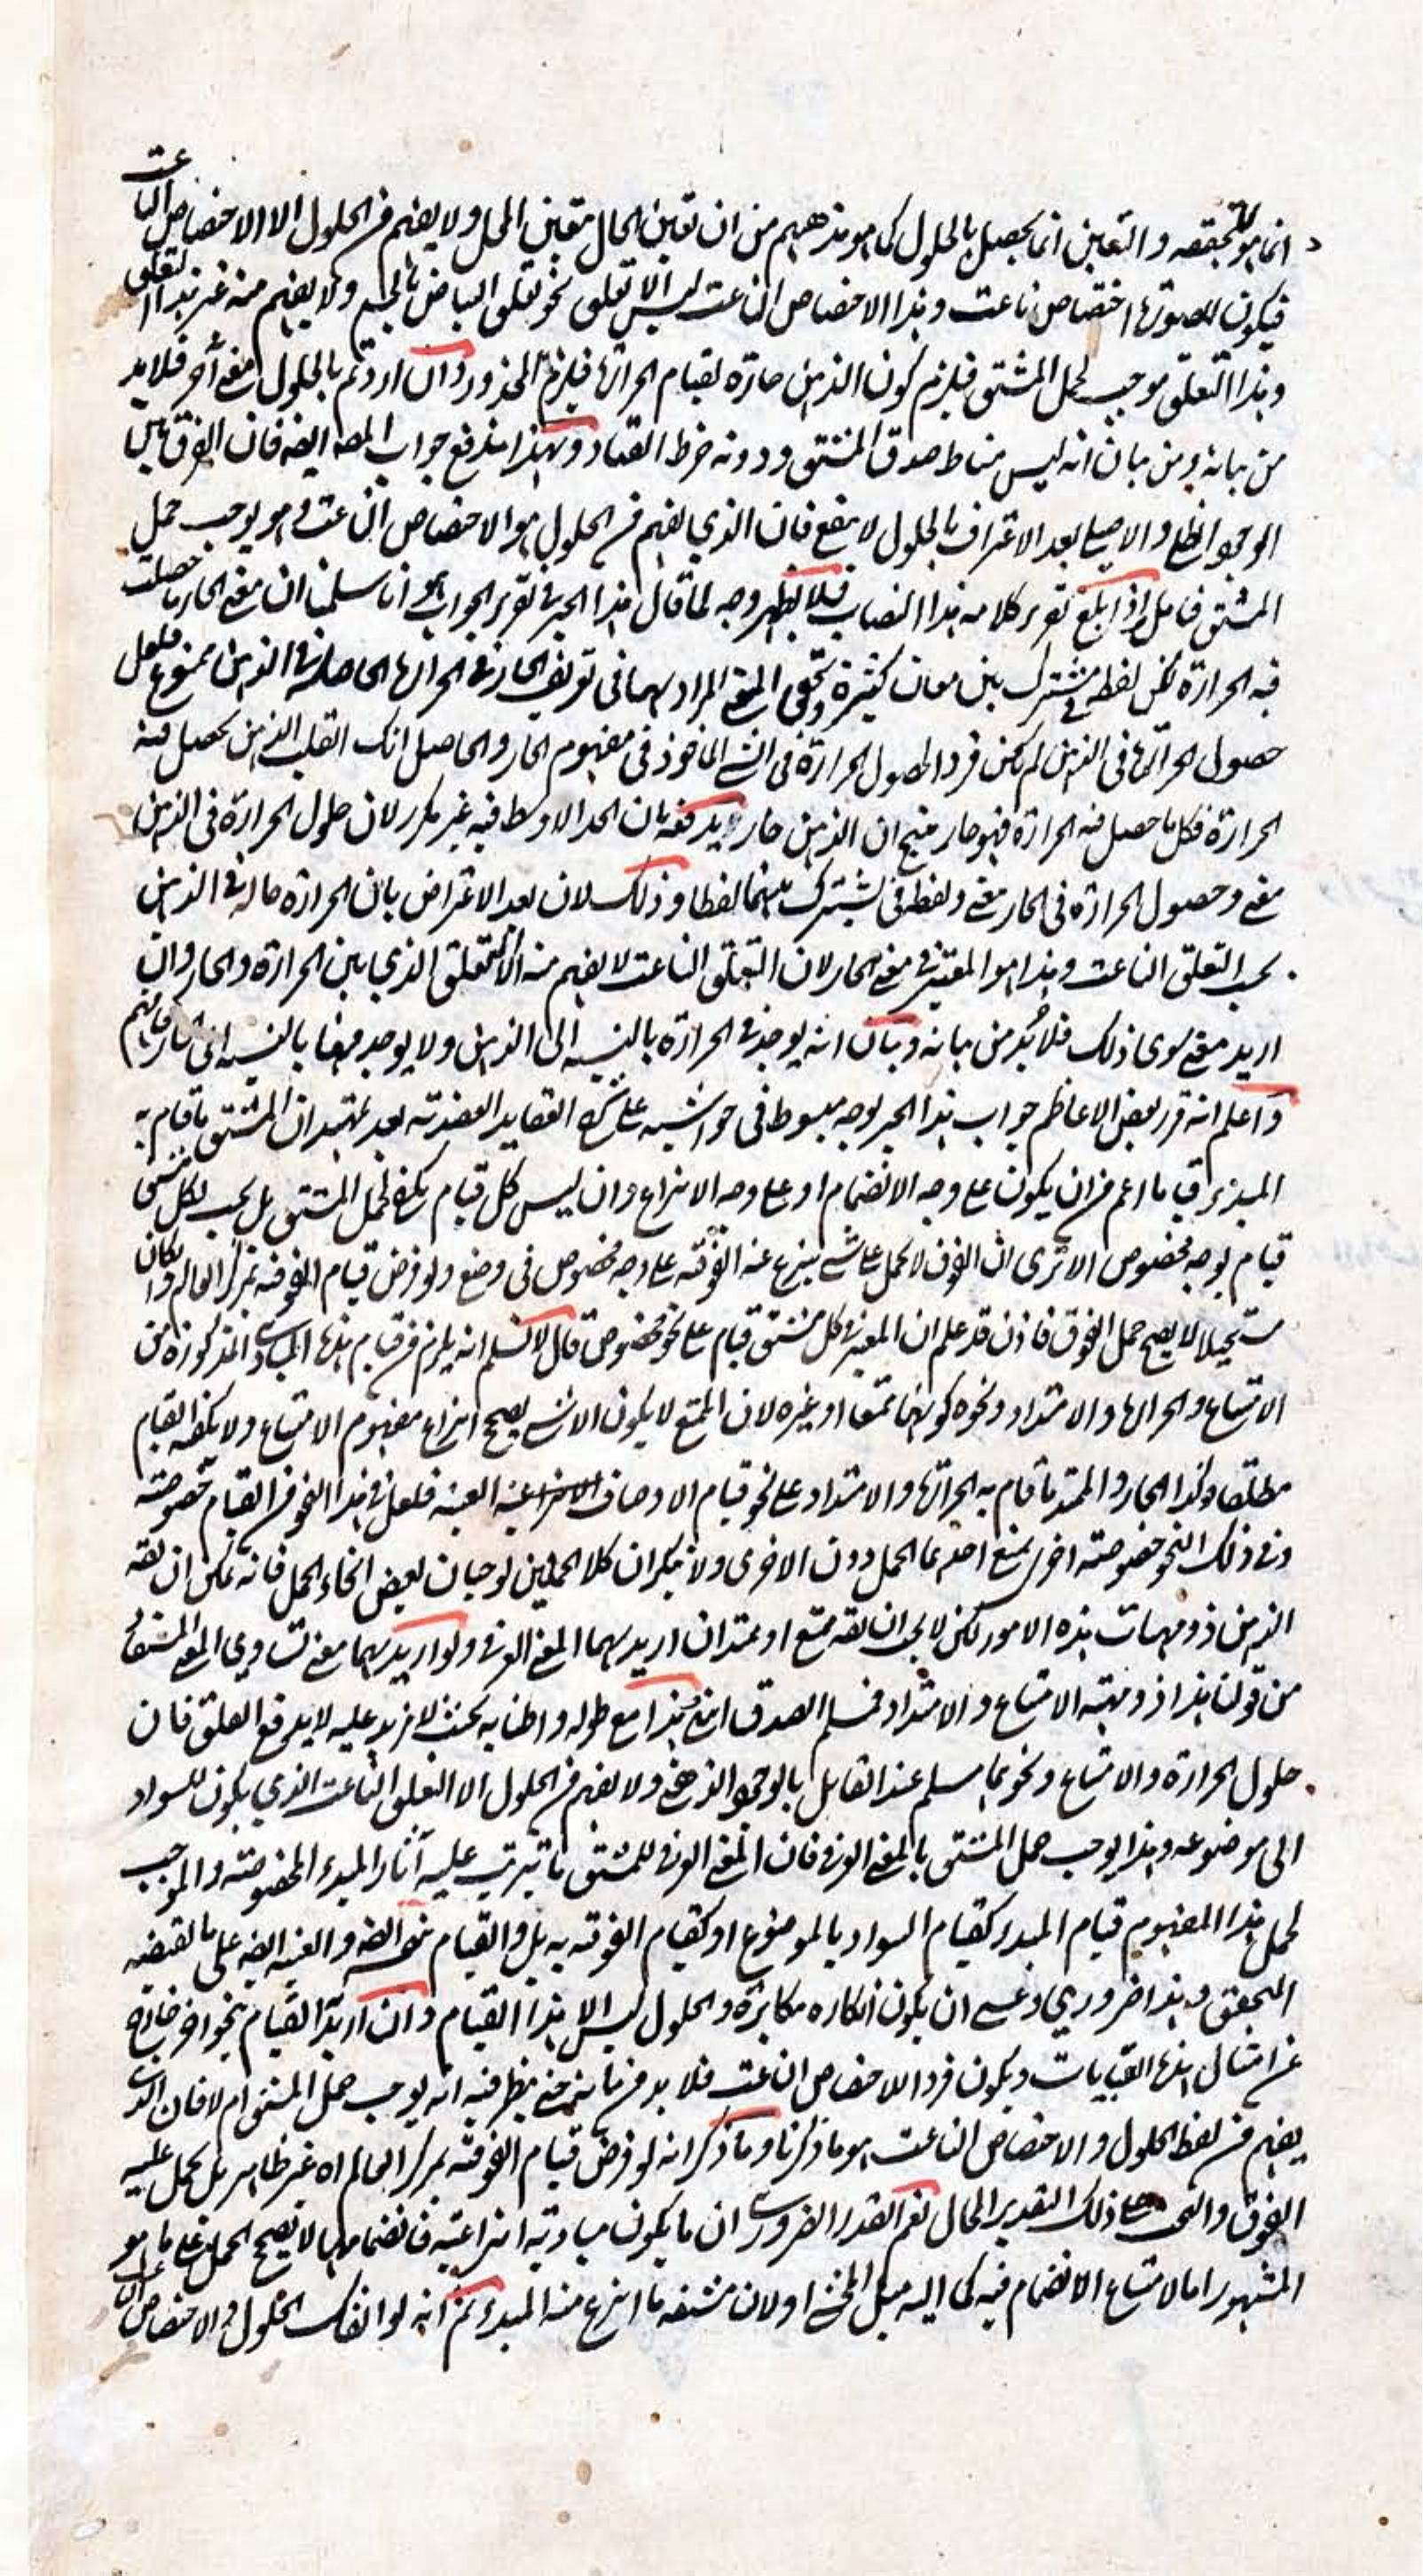 انما هو لتحققه والتعين انما يحصل بالحلول كما هو مذهبهم من ان تعين الحال بتعين المحل ولا يفهم من الحلول الا الاختصاص الناعت
فيكون للصورة اختصاص ناعت وهذا الاختصاص الناعت ليس الا تعلق نحو تعلق البياض بالجسم ولا يفهم منه غير هذا التعلق
وهذا التعلق موجب لحمل المشتق فيلزم كون الذهن حارة لقيام الحرارة فيلزم المحذور وان اردتم بالحلول معنى آخر فلا بد
من بيانه ومن بيان انه ليس مناط صدق المشتق ودونه خرط القتاد وبهذا يندفع جواب المصـ ايضـ فان الفرق بين
الوجود الظلي والاصلي بعد الاعتراف بالحلول لا ينفع فان الذي يفهم من الحلول هو الاختصاص الناعت وهو يوجب حمل
المشتق فتامل واذا بلغ تقرير كلامه هذا النصاب فلا يظهر وجه لما قال هذا الحبر في تقرير الجواب هو انا سلمنا ان معنى الحار ما حصلت
فيه الحرارة لكن لفظ في مشترك بين معان كثيرة وتحقق المعنى المراد بها في تعريف الحار في الحرارة الحاصلة في الذهن ممنوع فلعل
حصول الحرارة في الذهن لم يكن فردا لحصول الحرارة في الشئ الماخوذ في مفهوم الحار والحاصل انك ان قلت الذهن يحصل فيه
الحرارة فكل ما حصل فيه الحرارة فهو حار ينتج ان الذهن حار ويدفعه بان الحد الاوسط فيه غير مكرر لان حلول الحرارة في الذهن
معنى وحصول الحرارة في الحار معنى ولفظ في يشترك بينهما لفظا وذلك لان بعد الاعتراض بان الحرارة حالة في الذهن
يجب التعلق الناعت وهذا هو المعتبر في معنى الحار لان التعلق الناعت لا يفهم منه الا التعلق الذي بين الحرارة والحار وان
اريد معنى سوى ذلك فلا بد من بيانه وبيان انه يوجد في الحرارة بالنسبة الى الذهن ولا يوجد فيها بالنسبة الى النار فافهم
واعلم انه قرر بعض الاعاظم جواب هذا الحبر بوجه مبسوط في حواشيه على شرح العقايد العضدية بعد تمهيد ان المشتق ما قام به
المبدء قياما اعم من ان يكون على وجه الانضمام او على وجه الانتزاع وان ليس كل قيام يكفي لحمل المشتق بل يجب لكل مشتق
قيام بوجه مخصوص الا ترى ان الفوق لا يحمل على شئ ينتزع عنه الفوقية على وجه مخصوص في وضع ولو فرض قيام الفوقية بمركز العالم وان كان
مستحيلا لا يصح حمل الفوق فاذن قد علم ان المعتبر في كل مشتق قيام على نحو مخصوص قال لا نسلم انه يلزم من قيام هذه المبادي المذكورة من
الامتناع والحرارة والامتداد ونحوه كونها ممتنعا او غيره لان الممتنع لا يكون الا شئ يصح انتزاع مفهوم الامتناع ولا يكفيه القيام
مطلقا وكذا الحار والممتد ما قام به الحرارة والامتداد على نحو قيام الاوصاف العينية فلعل في هذا النحو من القيام خصوصية
وفي ذلك النحو خصوصية اخرى يمنع احدهما الحمل دون الاخرى ولا ينكر ان كلا الحملين يوجبان بعض انحاء الحمل فانه يمكن ان يقـ
الذهن ذو مهيات هذه الامور لكن لا يجب ان يقـ ممتنع او ممتد ان اريد بهما المعنى العرفي ولو اريد بهما معنى يساوي المعنى المستفاد
من قولنا هذا ذو مهية الامتناع والامتداد فنسلم الصدق انتهى فهذا مع طوله واطنابه بحيث لا مزيد عليه لا يدفع القلق فان
حلول الحرارة والامتناع ونحوهما مسلم عند القايل بالوجود الذهني ولا يفهم من الحلول الا التعلق الناعت الذي يكون للسواد
الى موضوعه وهذا يوجب حمل المشتق بالمعنى العرفي فان المعنى العرفي للمشتق ما يترتب عليه آثار المبدء المخصوصة والموجب
لحمل هذا المفهوم قيام المبدء كقيام السواد بالموضوع او كقيام الفوقية به بل والقيام
المحقق وهذا ضروري وعسى ان يكون انكاره مكابرة والحلول ليس الا هذا القيام وان اريد القيام بنحو آخر خارج
عن امثال هذه القيامات ويكون فردا للاختصاص الناعت فلا بد من بيانه حتى ينظر فيه انه يوجب حمل المشتق ام لا فان الذي
يفهم من لفظ الحلول والاختصاص الناعت هو ما ذكرنا وما ذكر انه لو فرض قيام الفوقية بمركز العالم اه غير ظاهر بل يحمل عليه
الفوق والتحت على ذلك التقدير المحال نعم القدر الضروري ان ما يكون مباديه انتزاعية فانضمامها لا يصح الحمل على ما هو
المشهور اما لامتناع الانضمام فيه كما اليه ميل المحشي او لان مشتقه ما انتزع منه المبدء ثم انه لو انفك الحلول والاختصاص الناعت